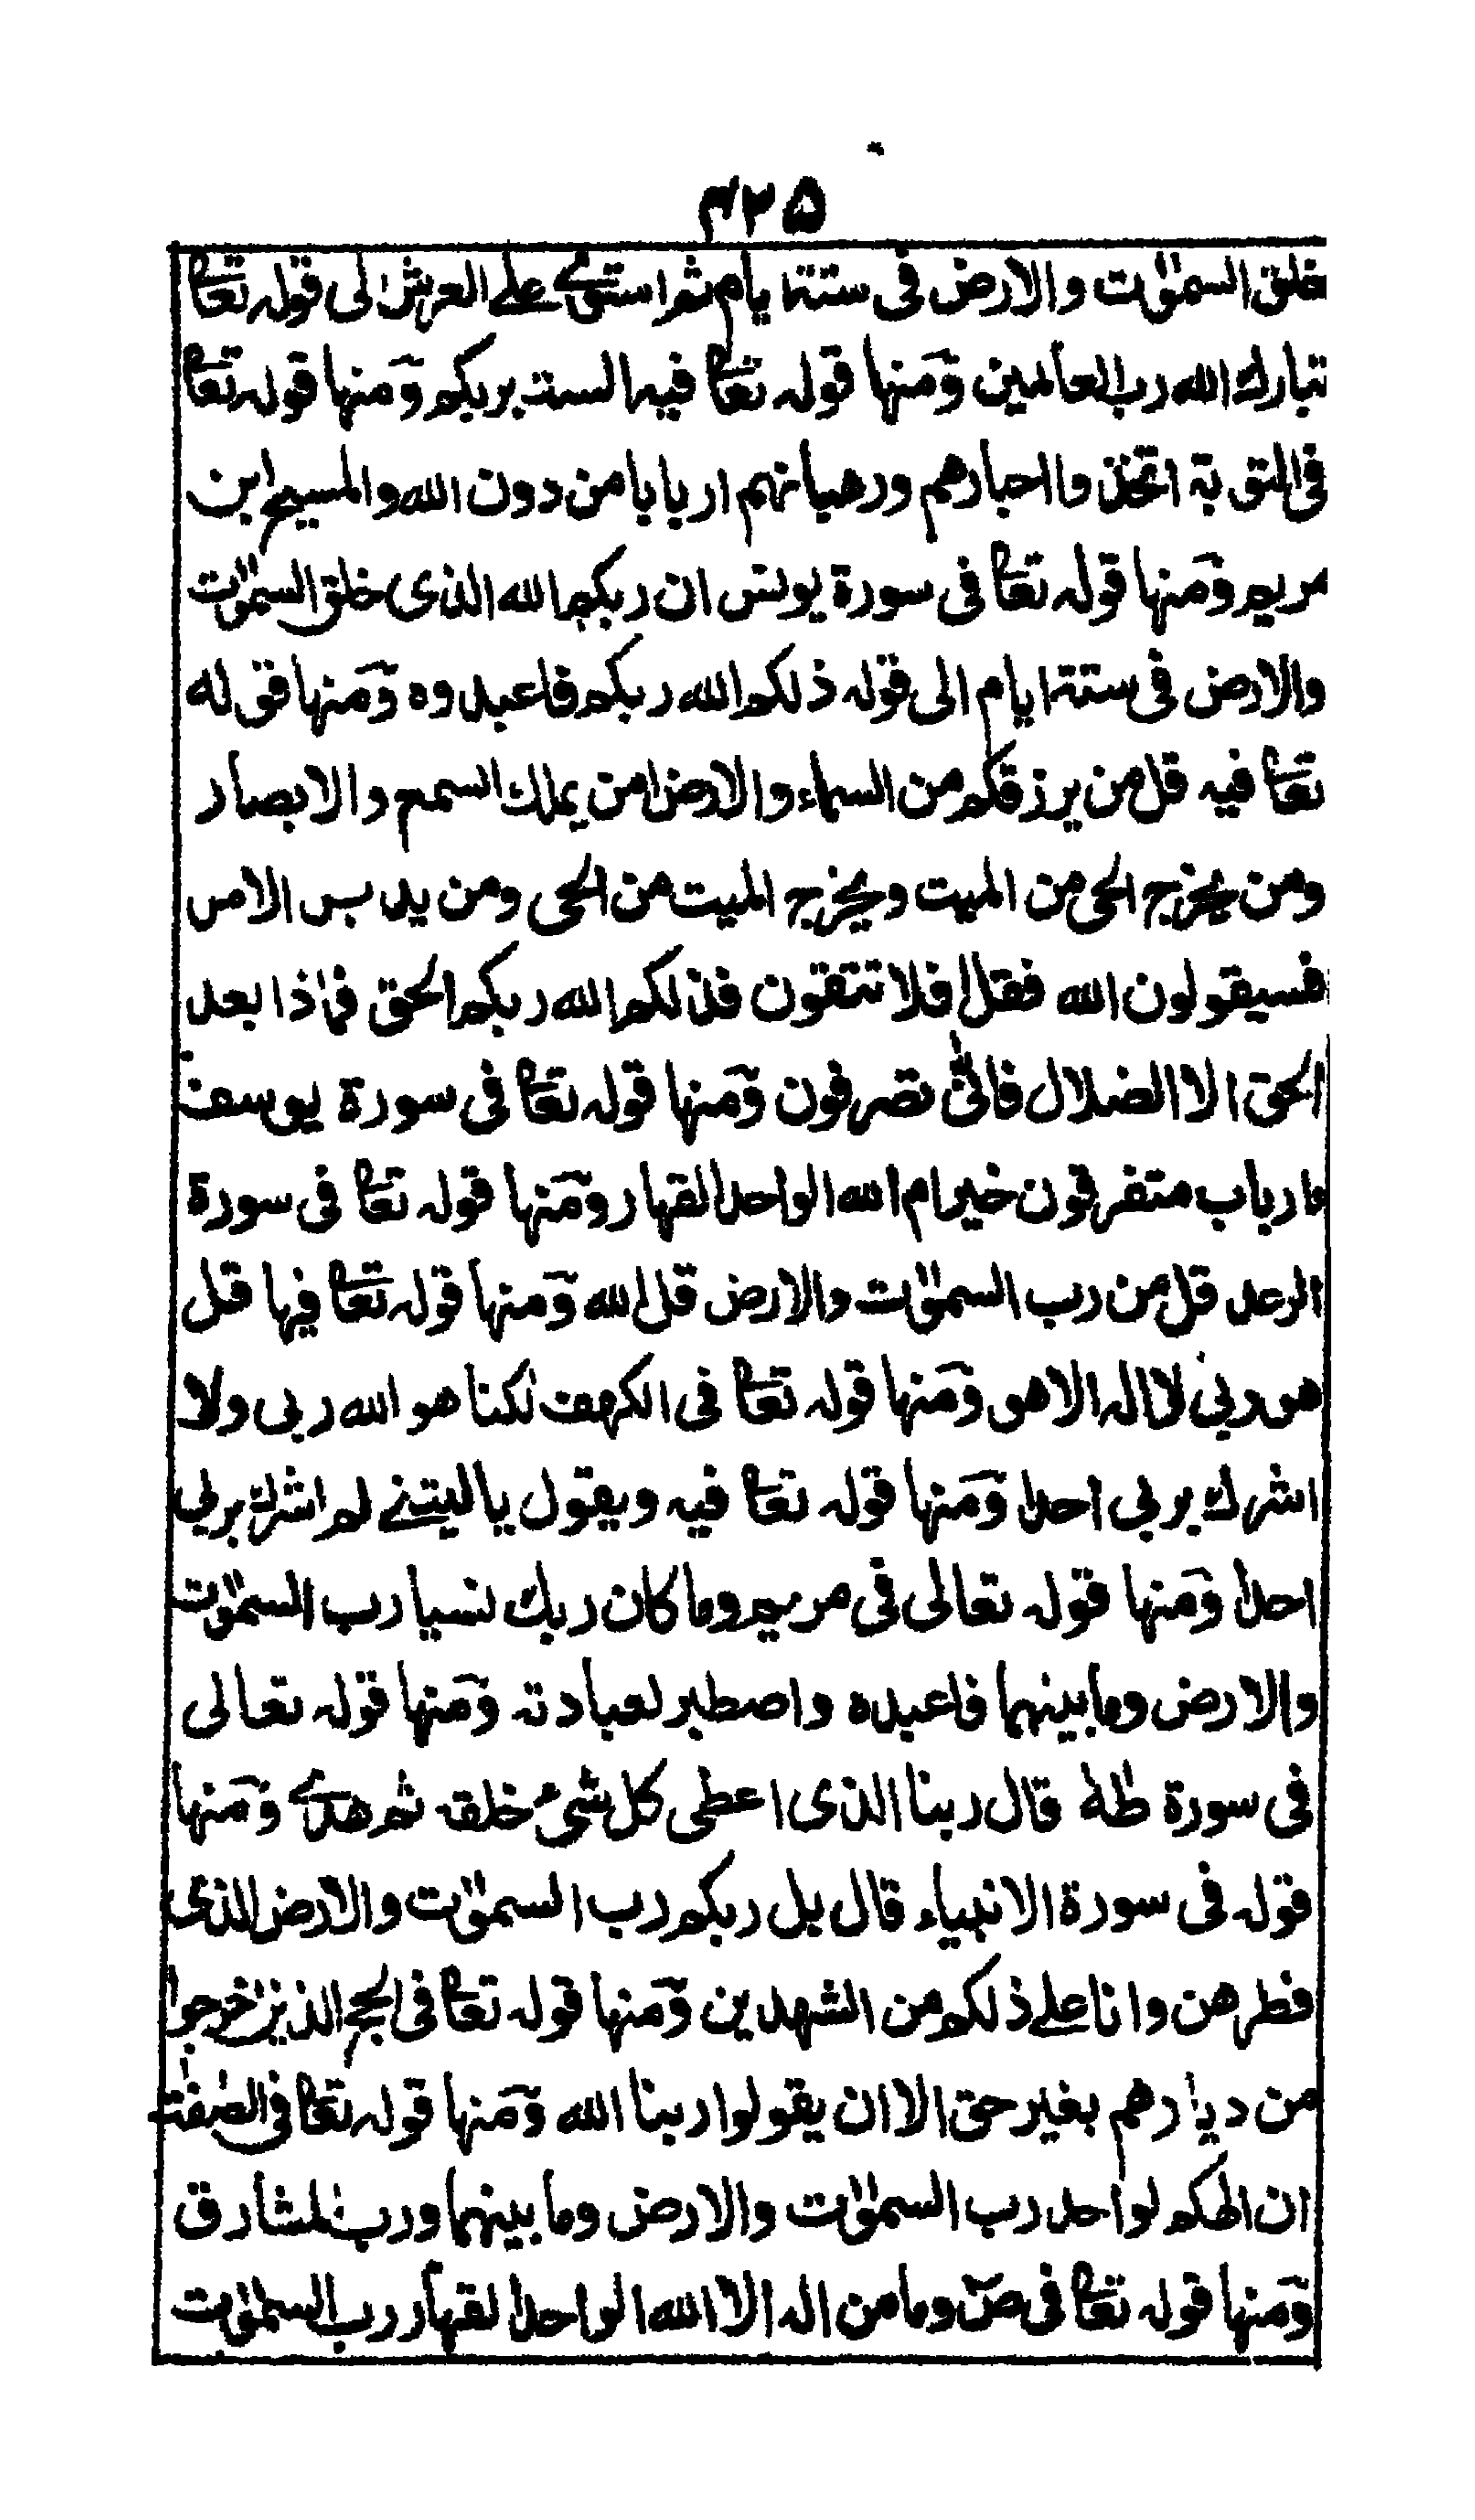 ٣٢٥
خلق السمٰوٰت والارض فی ستة ایام ثم استوٰے علے العرش الی قوله تعا
تبارك الله رب العالمین ومنها قوله تعا فیه الست بربكم ومنها قوله تعا
فی التوبة اتخذوا احبارهم ورهبانهم اربابا من دون الله والمسیح ابن
مریم ومنها قوله تعا فی سورة یونس ان ربكم الله الذی خلق السمٰوٰت
والارض فی ستة ایام الی قوله ذلكم الله ربكم فاعبدوه ومنها قوله
تعا فیه قل من یرزقكم من السماء والارض امن یملك السمع والابصار
ومن یخرج الحی من المیت ویخرج المیت من الحی ومن یدبر الامر
فسیقولون الله فقل افلا تتقون فذلكم الله ربكم الحق فماذا بعد
الحق الا الضلال فانّٰی تصرفون ومنها قوله تعا فی سورة یوسف
ءارباب متفرقون خیر ام الله الواحد القهار ومنها قوله تعا فی سورة
الرعد قل من رب السمٰوٰت والارض قل الله ومنها قوله تعا فیها قل
هو ربی لا اله الا هو ومنها قوله تعا فی الكهف لكنا هو الله ربی ولا
اشرك بربی احدا ومنها قوله تعا فیه ویقول یا لیتنے لم اشرك بربی
احدا ومنها قوله تعالی فی مریم وما كان ربك نسیا رب السمٰوٰت
والارض وما بینهما فاعبده واصطبر لعبادته ومنها قوله تعالی
فی سورة طٰهٰ قال ربنا الذی اعطی كل شئ خلقه ثم هدٰے ومنها
قوله فی سورة الانبیاء قال بل ربكم رب السمٰوٰت والارض الذی
فطرهن وانا علے ذلكم من الشهدین ومنها قوله تعا فی الحج الذین اخرجوا
من دیارهم بغیر حق الا ان یقولوا ربنا الله ومنها قوله تعا فی الصٰفٰت
ان الهكم لواحد رب السمٰوٰت والارض وما بینهما ورب المشارق
ومنها قوله تعا فی صٓ وما من اله الا الله الواحد القهار رب السمٰوٰت